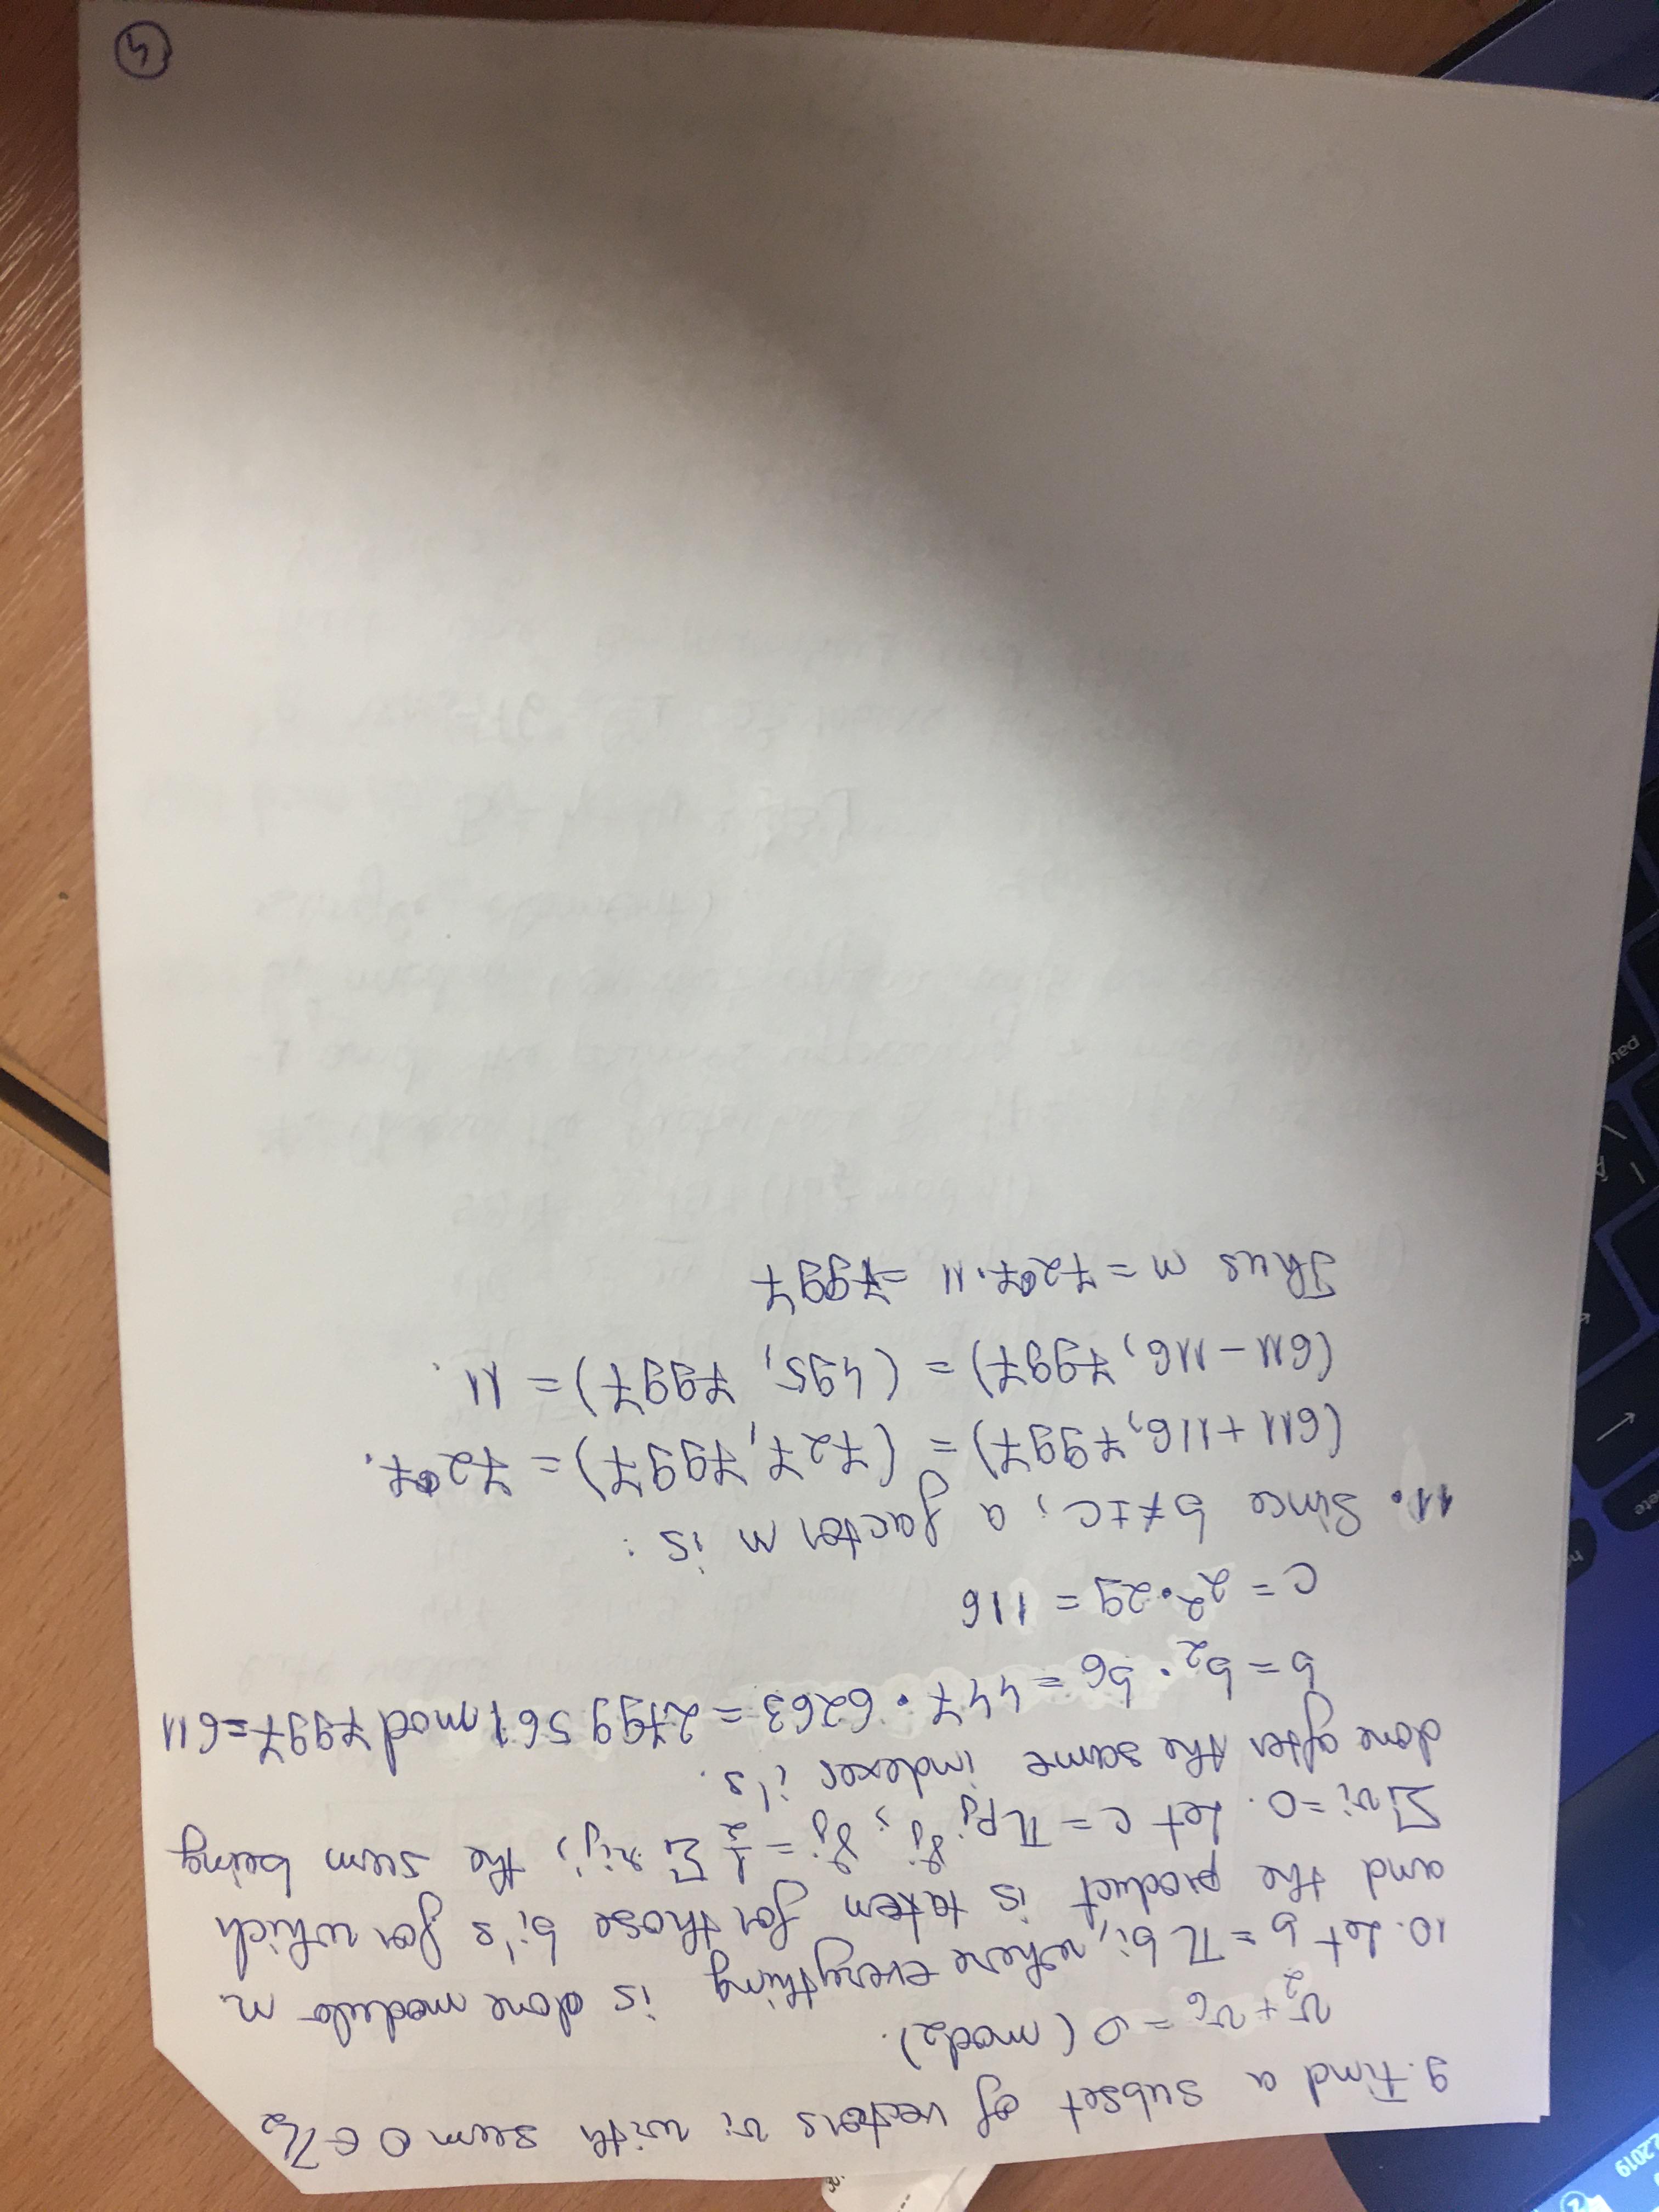 9. Find a subset of vectors vi with sum 0 ∈ Z₂
v₂ + v₆ = 0 (mod 2).
10. Let b = π bi, where everything is done modulo m
and the product is taken for those bi's for which
Σ vi = 0. Let c = π pj^γj, γj = 1/2 Σ rij, the sum being
done after the same indexes i's.
b = b₂ · b₆ = 447 · 6263 = 2799561 mod 7997 = 611
c = 2² · 29 = 116
11. Since b ≠ ±c, a factor m is :
(611 + 116, 7997) = (727, 7997) = 727.
(611 - 116, 7997) = (495, 7997) = 11.
Thus m = 727 · 11 = 7997
4